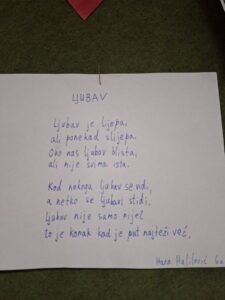 LJUBAV
Ljubav je lijepa,
ali ponekad slijepa.
Oko nas ljubav blista,
ali nije svima ista.
Kod nekoga ljubav se vidi,
a netko se ljubavi stidi,
Ljubav nije samo riječ
to je konak kad je put najteži već.
Hana Halilović 6a